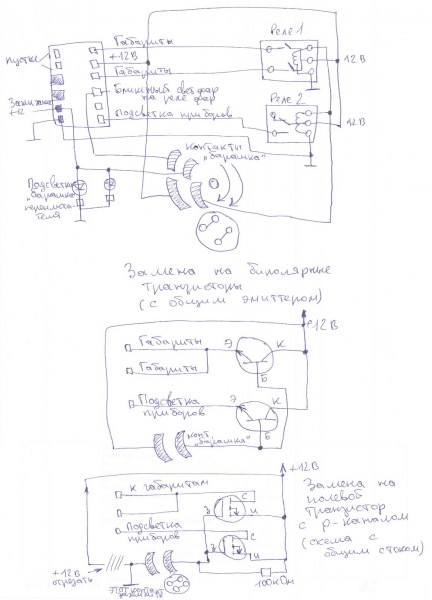 Габариты
Реле 1
пустые
+12В
Габариты
12 В
Ближний свет фар
на реле фар
Зажигание
+12
Подсветка приборов
Реле 2
12 В
контакты
"барашка"
Подсветка
"барашка"
переключа-
теля
Замена на биполярные
транзисторы
(с общим эмиттером)
+12 В
Габариты
Э
К
Габариты
Б
Подсветка
приборов
Э
К
Б
конт.
"барашка"
+12 В
к габаритам
С
З
И
Подсветка
приборов
С
И
+12 В
отрезать
100 кОм
Замена на
полевой
транзистор
с p-каналом
(схема с
общим стоком)